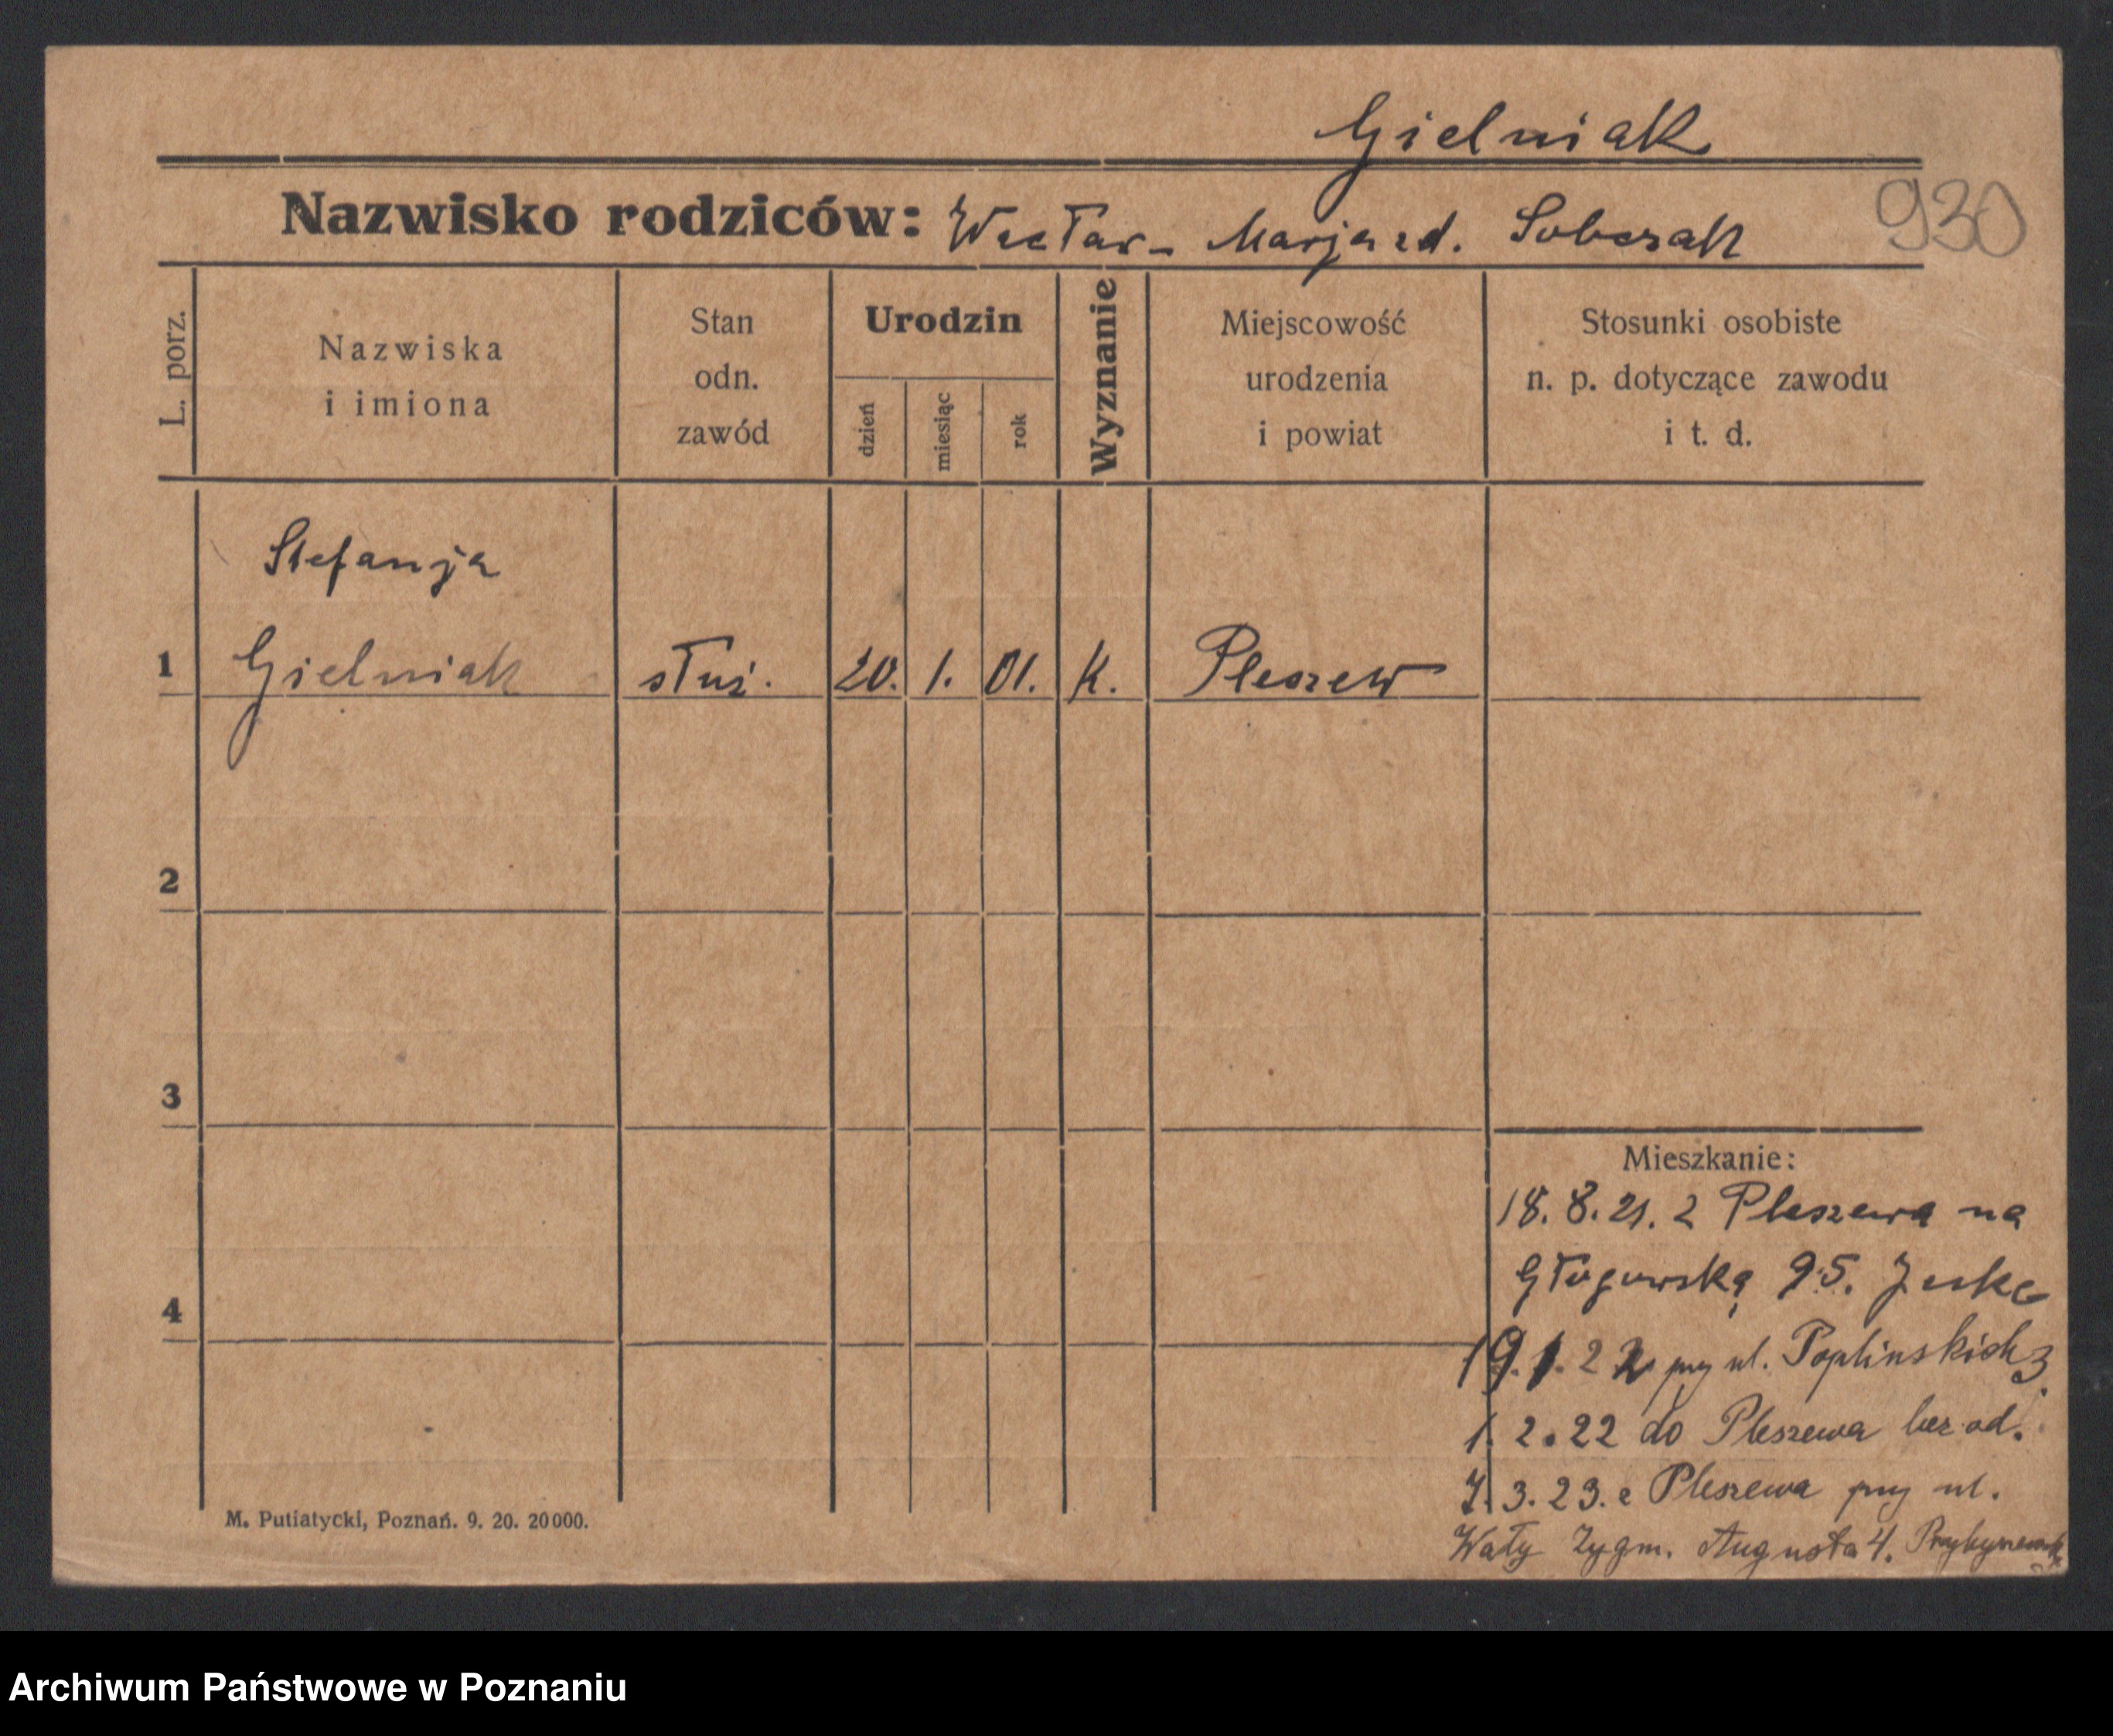 Gielniak
930
Nazwisko rodziców: Wacław - Marja zd. Sobczak
L. porz.
Nazwiska
i imiona
Stan
odn.
zawód
Urodzin
dzień
miesiąc
rok
Wyznanie
Miejscowość
urodzenia
i powiat
Stosunki osobiste
n. p. dotyczące zawodu
i t. d.
Stefanja
1 Gielniak służ. 20. 1. 01. K. Pleszew
2
3
4
Mieszkanie:
18. 8. 21. z Pleszewa na
Głogowską 95. Jeske
19. 1. 22 przy ul. Poplinskich 3.
1. 2. 22 do Pleszewa bez od.
7. 3. 23. z Pleszewa przy ul.
Wały Zygm. Augusta 4.
M. Putiatycki, Poznań. 9. 20. 20000.
Archiwum Państwowe w Poznaniu